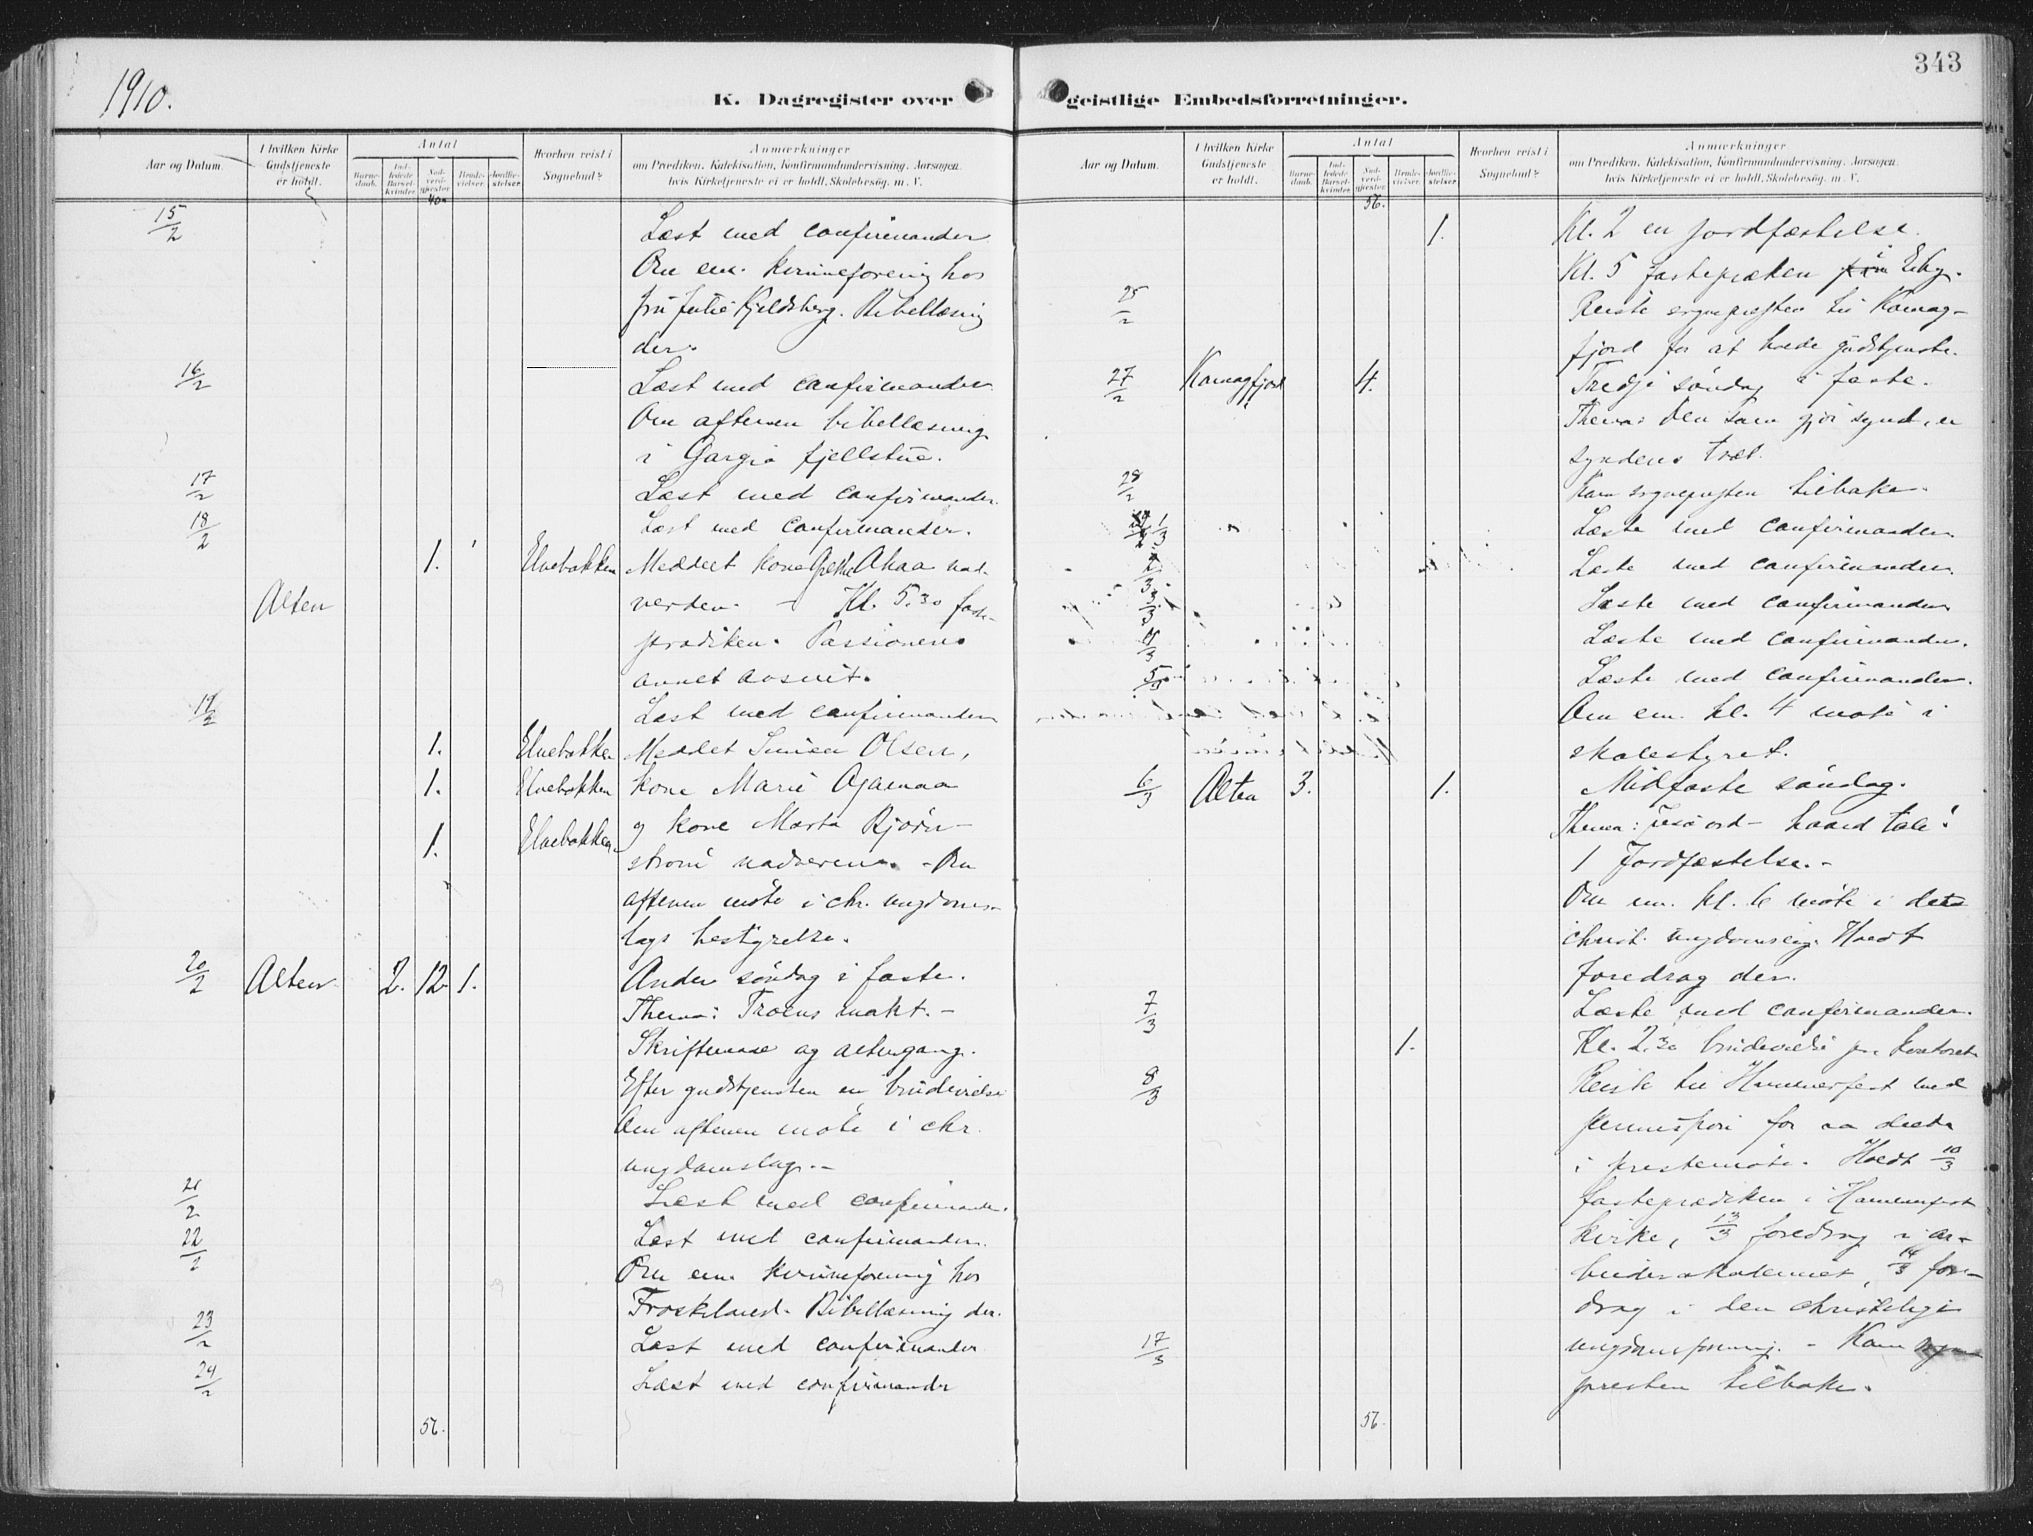 343
1910.
K. Dagregister over geistlige Embedsforretninger.
Aar og Datum.
I hvilken Kirke Gudstjeneste er holdt.
Antal
Barnedaab.
Indledede Barselkvinder.
Nadverdgjester.
Brudevielser.
Jordfæstelser.
Hvorhen reist i Sognebud?
Anmærkninger
om Prædiken, Katekisation, Konfirmandundervisning. Aarsagen,
hvis Kirketjeneste ei er holdt, Skolebesøg. m. V.
40
15/2 Læst med confirmander
Om em. kvinneforening hos
fru Julie Kjeldsberg. Bibellæsning
der.
16/2 Læst med confirmander
Om aftenen bibellæsning
i Gargia fjellstue.
17/2 Læst med confirmander.
18/2 Læst med confirmander.
1. Elvebakken Meddelt kone Grethe Akaa nad-
Alten verden. – Kl. 5.30 faste-
prædiken. Passionens
annet avsnit.
19/2 Læst med confirmander
1. Elvebakken Meddelt Simon Olsen,
1. Elvebakken kone Marie
1. Elvebakken og kone Marta Bjørn-
strøm nadveren. – Om
aftenen møte i chr. ungdoms-
lags bestyrelse.
20/2 Alten 2. 12. 1. Anden søndag i faste.
Thema: Troens makt. –
Skriftemaal og altergang.
Efter gudstjenesten en brudevielse
Om aftenen møte i chr.
ungdomslag. –
21/2 Læst med confirmander.
22/2 Læst med confirmander.
Om em. kvinneforening hos
Froskeland. Bibellæsning der.
23/2 Læst med confirmander
24/2 Læst med confirmander
56.
Aar og Datum.
I hvilken Kirke Gudstjeneste er holdt.
Antal
Barnedaab.
Indledede Barselkvinder.
Nadverdgjester.
Brudevielser.
Jordfæstelser.
Hvorhen reist i Sognebud?
Anmærkninger
om Prædiken, Katekisation, Konfirmandundervisning, Aarsagen,
hvis Kirketjeneste ei er holdt, Skolebesøg. m. V.
56.
1. Kl. 2 en jordfæstelse.
Kl. 5 fastepræken i Elby.
25/2 Reiste sognepresten til Komag-
fjord for at holde gudstjeneste.
27/2 Komagfjord 4. Tredje søndag i faste.
Thema: Den som gjør synd, er
syndens træl.
28/2 Kom sognepresten tilbake.
1/3 Læste med confirmander
2/3 Læste med confirmander.
3/3 Læste med confirmander
4/3 Læste med confirmander.
5/3 Læste med confirmander.
Om em. kl. 4 møte i
skolestyret.
6/3 Alten 3. 1. Midfaste søndag.
Thema: Jesu ord – haard tale!
1 Jordfæstelse. –
Om em. kl. 6 møte i det
christ. ungdomslag. Holdt
foredrag der.
7/3 Læste med confirmander.
1. Kl. 2.30 brudevielse paa kontoret
8/3 Reiste til Hammerfest med
for aa delta
i prestemøte. Holdt 10/3
fasteprædiken i Hammerfest
kirke, 13/3 foredrag i ar-
beiderakademiet, 14/3 fore-
drag i den christelige
17/3 ungdomsforening. – Kom sogne-
presten tilbake.
56.